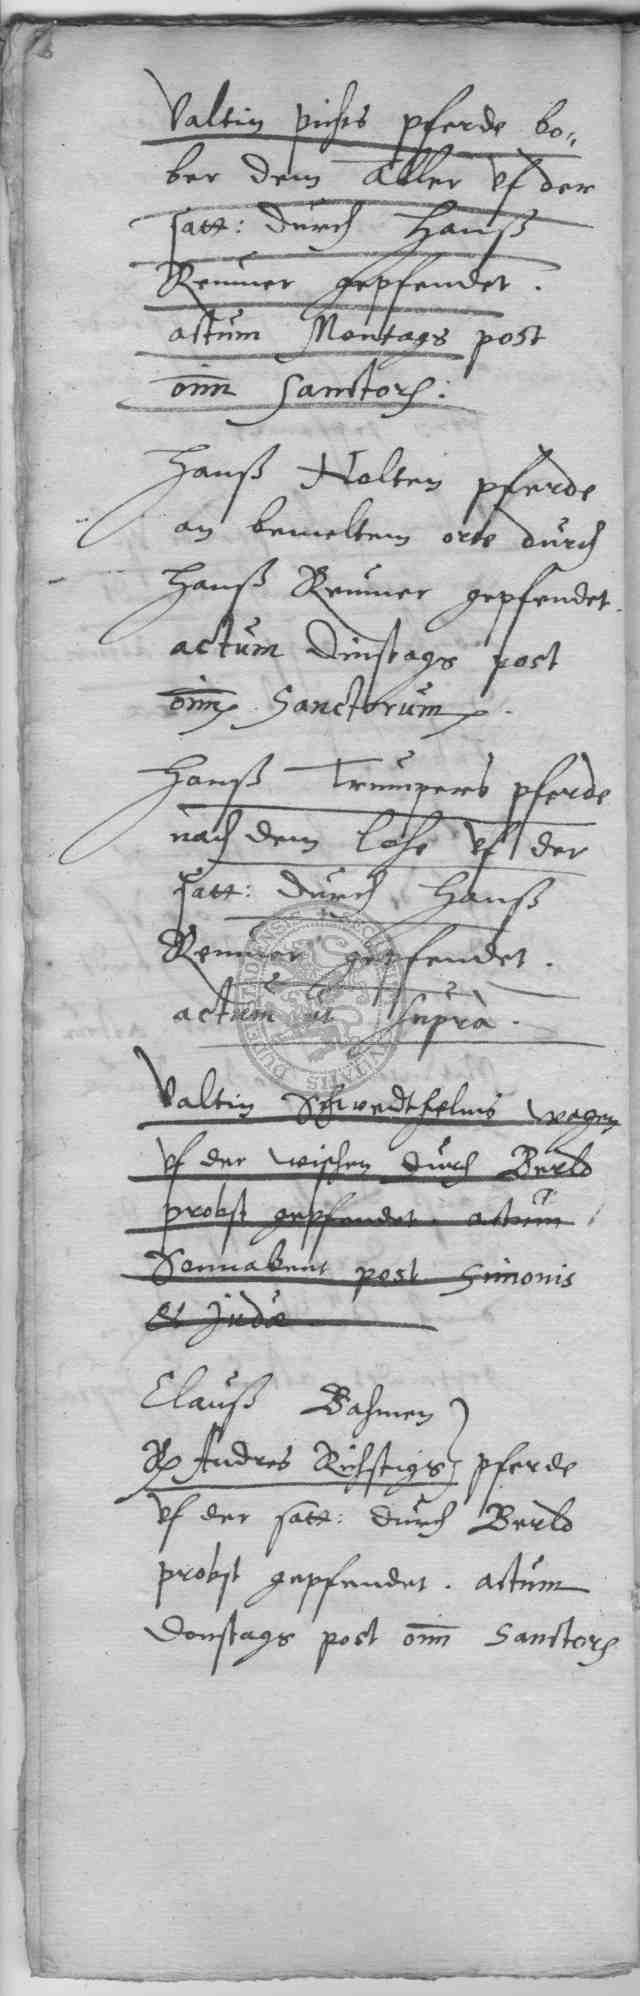 Valtin pichts pferde bo„
ber dem aller vf der
satt: durch Hanß
Remmer gepfendet.
actum Montags post
oīm Sanctorū:
Hanß Nolten pferde
an bemeltem orte durch
Hanß Remmer gepfendet.
actum Dinstags post
oīm Sanctorum.
Hanß Trumpers pferde
nach dem Lohe vf der
satt: durch Hanß
Remmer gepfendet.
actum ut supra.
Valtin Schwedthelms wagen
vf der wischen durch Berld
probst gepfendet. actum
Sonnabent post Simonis
et Judæ
Clauß Bahmen
Andres Richstigs pferde
vf der satt: durch Berld
probst gepfendet. actum
Donstags post oīm Sanctorū